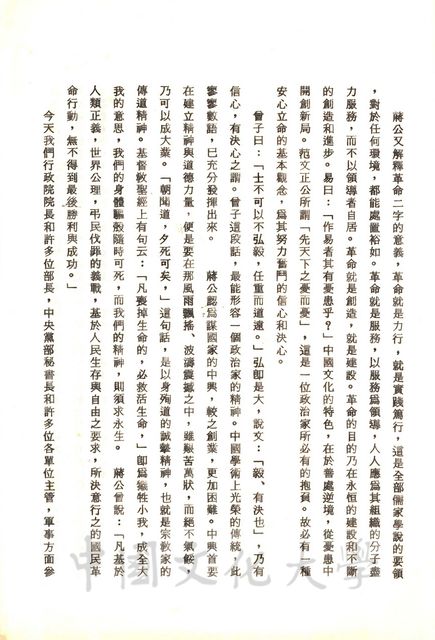 蔣公又解釋革命二字的意義，革命就是力行，就是實踐篤行，這是全部儒家學說的要領
，對於任何環境，都能處置裕如。革命就是服務，以服務爲領導，人人應爲其組織的分子盡
力服務，而不以領導者自居。革命就是創造，就是建設。革命的目的乃在永恒的建設和不斷
的創造和進步。易曰：「作易者其有憂患乎？」中國文化的特色，在於善處逆境，從憂患中
開創新局。范文正公所謂「先天下之憂而憂」，這是一位政治家所必有的抱負。故必有一種
安心立命的基本觀念，爲其努力奮鬥的信心和決心。
曾子曰：「士不可以不弘毅，任重而道遠。」弘即是大，說文：「毅、有決也」，乃有
信心，有決心之謂。曾子這段話，最能形容一個政治家的精神。中國學術上光榮的傳統，此
寥寥數語，已充分發揮出來。　蔣公認爲謀國家的中興，較之創業，更加困難。中興首要
在建立精神與道德力量，便是要在那風雨飄搖、波濤震撼之中，雖艱苦萬狀，而絕不氣餒，
乃可以成大業。「朝聞道，夕死可矣，」這句話，是以身殉道的誠摯精神，也就是宗敎家的
傳道精神。基督敎聖經上有句云：「凡喪掉生命的，必救活生命，」即爲犧牲小我，成全大
我的意思，我們的身體軀殼隨時可死，而我們的精神，則須求永生。　蔣公曾說：「凡基於
人類正義，世界公理，弔民伐罪的義戰，基於人民生存與自由之要求，所決意行之的國民革
命行動，無不得到最後勝利與成功。」
今天我們行政院院長和許多位部長，中央黨部秘書長和許多位各單位主管，軍事方面參
中國文化大學